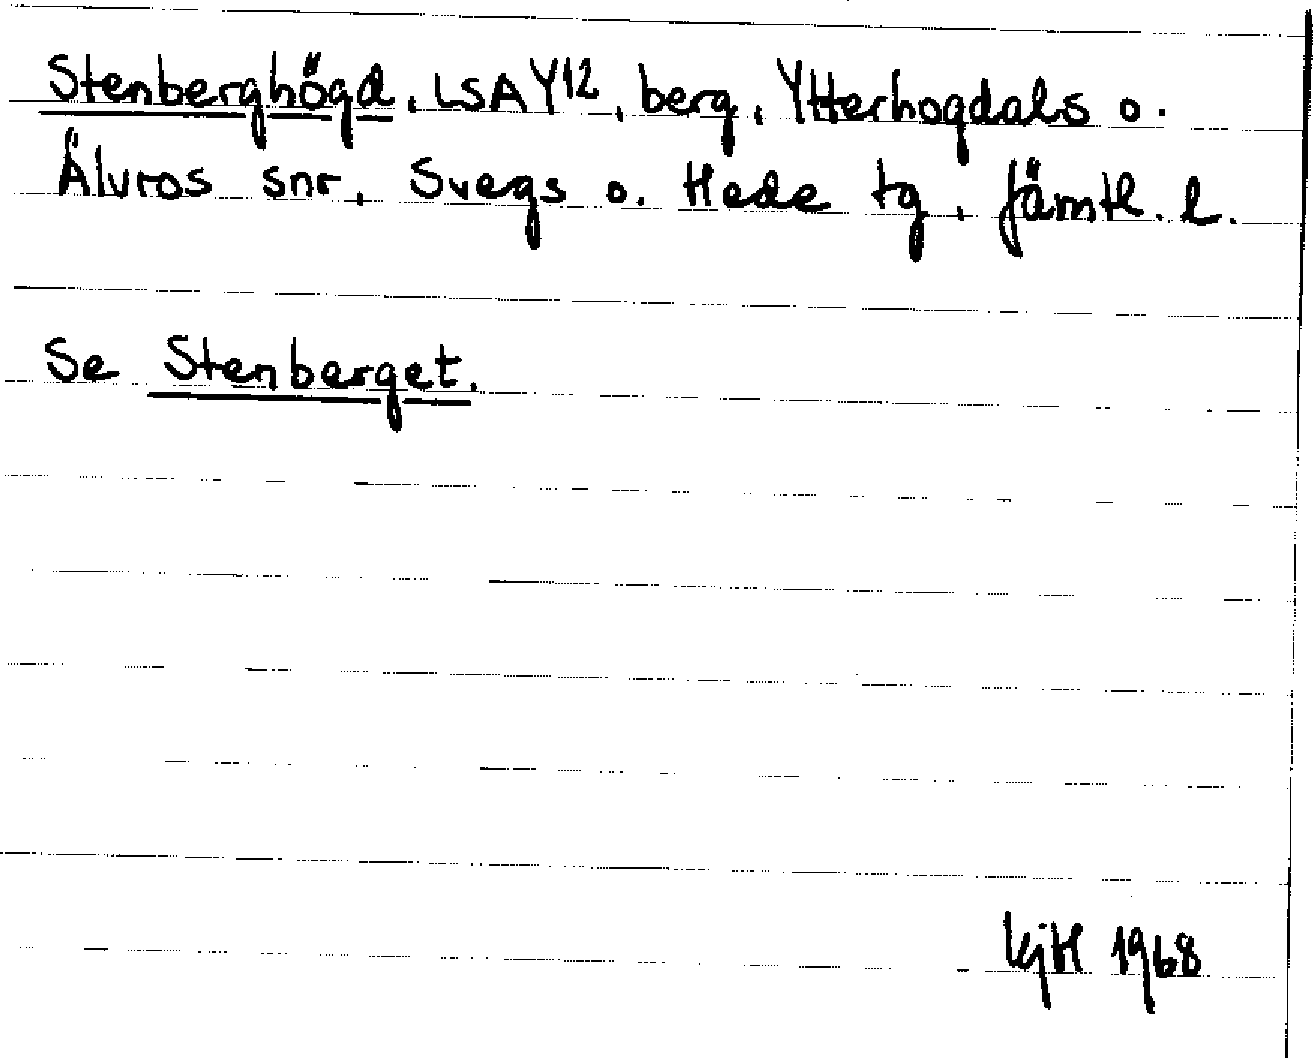 Stenberghögd, LSA Y12, berg, Ytterhogdals o.
Älvros snr, Svegs o. Hede tg, Jämtl. l.
Se Stenberget.
KjH 1968